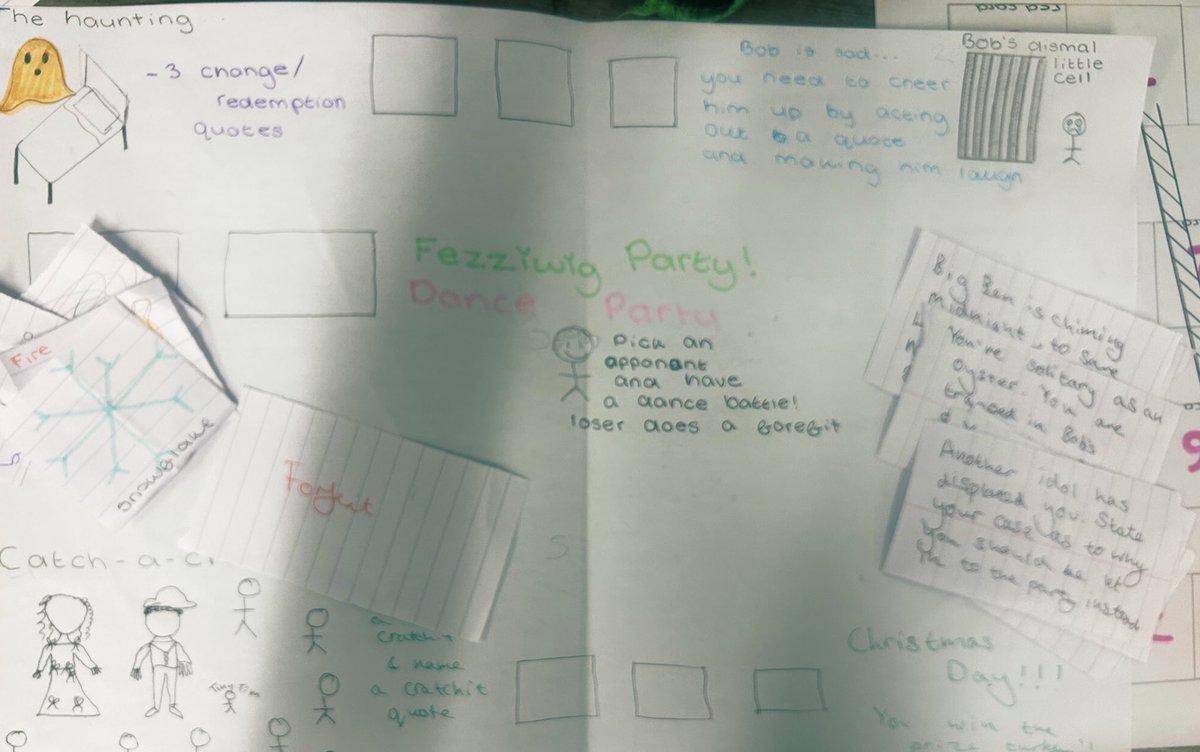 The haunting
- 3 change/
redemption
quotes
Bob is sad...
you need to cheer
him up by acting
out a quote
and making him laugh
Bob's dismal
little
cell
red card
Fezziwig Party!
Dance Party
pick an
apponant
and have
a dance battle!
loser does a forefit
Fire
snowflake
Forfeit
Big Ben is chiming
midnight, to save
You're solitary as an
oyster. You are
trapped in Bob's
Another idol has
displaced you. State
your case as to why
you should be let
in to the party instead
Catch-a-
Tiny Tim
a
cratchit
& name
a cratchit
quote
Christmas
Day!!!
You win the
prize